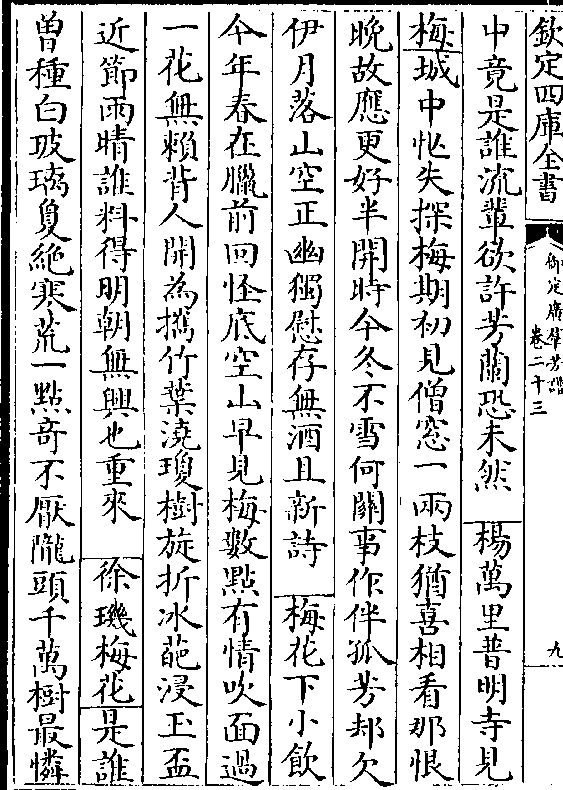 欽定四庫全書
御定廣群芳譜
卷二十三
九
中竟是誰流輩欲許芳蘭恐未然　楊萬里普明寺見
梅城中忙失探梅期初見僧窓一兩枝猶喜相看那恨
晚故應更好半開時今冬不雪何關事作伴孤芳却欠
伊月落山空正幽獨慰存無酒且新詩　梅花下小飲
今年春在臘前回怪底空山早見梅數點有情吹面過
一花無賴背人開為攜竹葉澆瓊樹旋折冰葩浸玉盃
近節雨晴誰料得明朝無興也重來　徐璣梅花是誰
曾種白玻瓈夐絕寒荒一點奇不厭隴頭千萬樹最憐